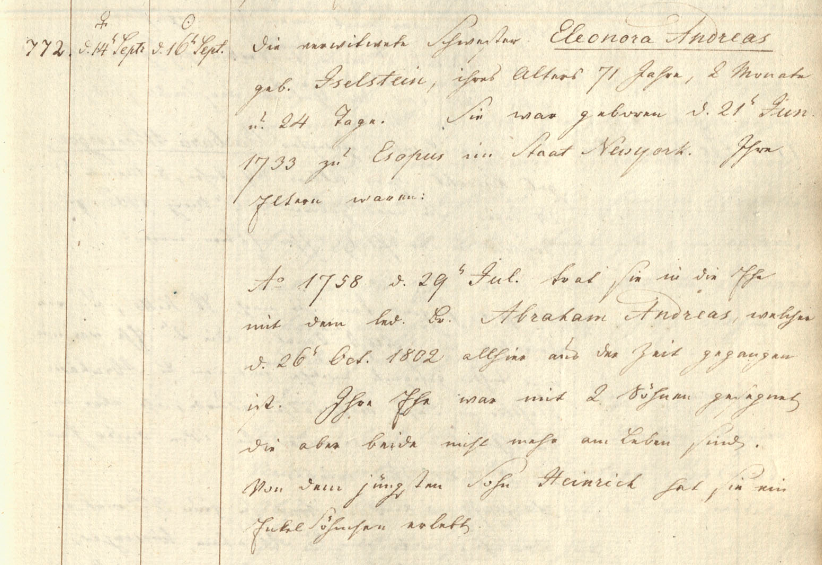 ♀ ☾
772. d. 14ᵗ Sept. d. 16ᵗ Sept. Die verwitwete Schwester Eleonora Andreas
geb. Iselstein, ihres Alters 71 Jahre, 2 Monate
u. 24 Tage. Sie war geboren d. 21ᵗ Jun.
1733 zu Esopus im Staat Newyork. Ihre
Eltern waren:
Aº 1758 d. 29ᵗ Jul. trat sie in die Ehe
mit dem led. Br. Abraham Andreas, welcher
d. 26ᵗ Oct. 1802 allhier aus der Zeit gegangen
ist. Ihre Ehe war mit 2 Söhnen gesegnet
die aber beide nicht mehr am Leben sind.
Von dem jüngsten Sohn Heinrich hat sie ein
Enkelsöhnchen erlebt.